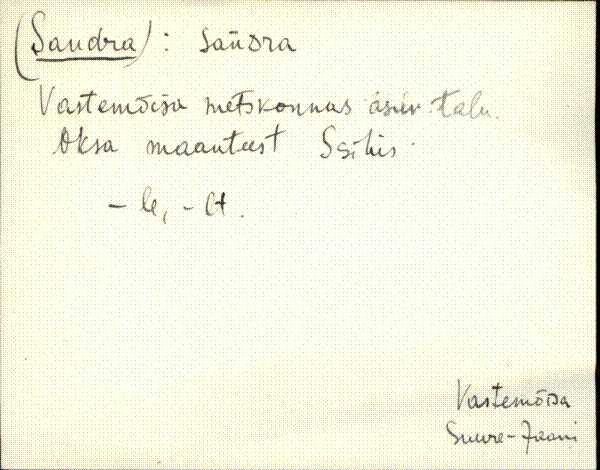 (Sandra) : sañdra
Vastemõisa metskonnas asuv talu.
Oksa maanteest S
- le, - st.
Vastemõisa
Suure-Jaani